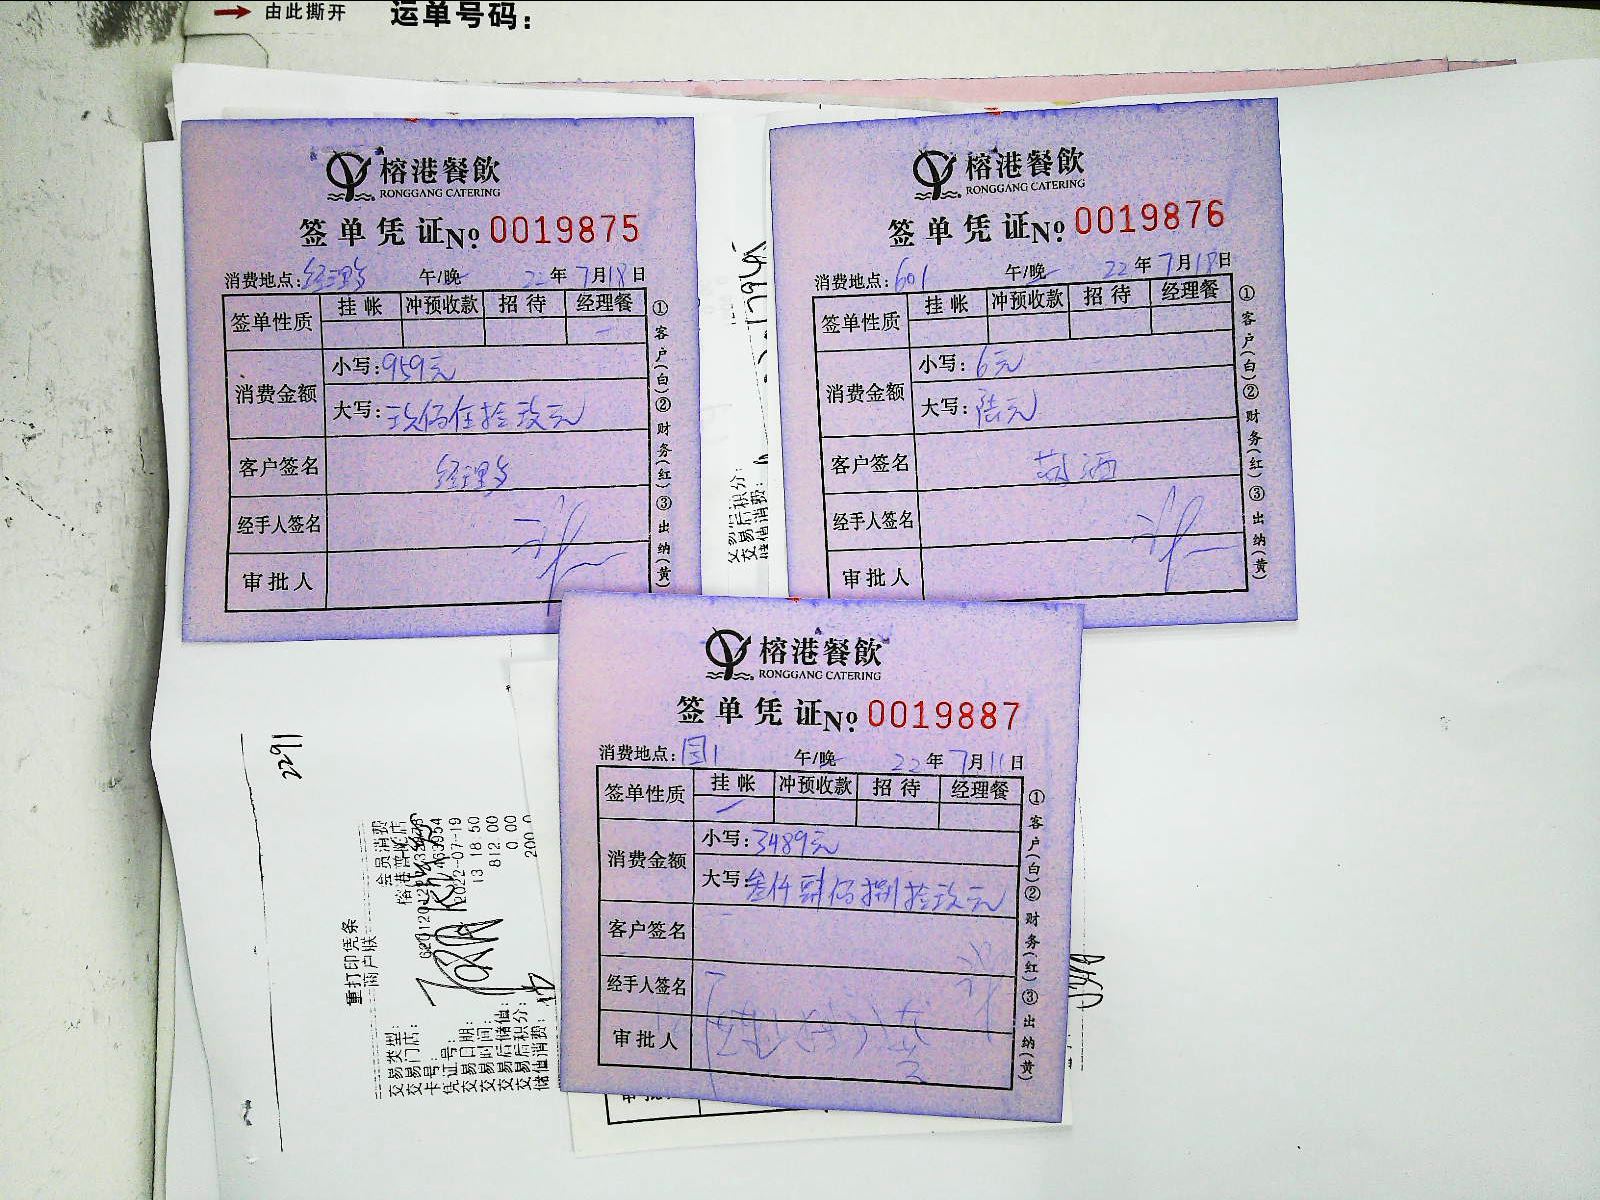 由此撕开
运单号码：
榕港餐飲
RONGGANG CATERING
签单凭证№ 0019875
消费地点：经理乡 午/晚 22年7月18日
签单性质 挂帐 冲预收款 招待 经理餐
消费金额 小写：959元
大写：玖佰伍拾玖元
客户签名 经理乡
经手人签名
审批人
①客户(白)②财务(红)③出纳(黄)
榕港餐飲
RONGGANG CATERING
签单凭证№ 0019876
消费地点：601 午/晚 22年7月18日
签单性质 挂帐 冲预收款 招待 经理餐
消费金额 小写：6元
大写：陆元
客户签名
经手人签名
审批人
①客户(白)②财务(红)③出纳(黄)
榕港餐飲
RONGGANG CATERING
签单凭证№ 0019887
消费地点：国1 午/晚 22年7月11日
签单性质 挂帐 冲预收款 招待 经理餐
消费金额 小写：3489元
大写：叁仟肆佰捌拾玖元
客户签名
经手人签名
审批人
①客户(白)②财务(红)③出纳(黄)
交易后积分：
储值消费：
2291
重打印凭条
商户联
交易类型： 会员消费
交易门店：
卡号：
凭证号：
交易日期： 2022-07-19
交易时间： 13 18 50
交易后储值： 812.00
交易后积分： 0.00
储值消费： 200.0